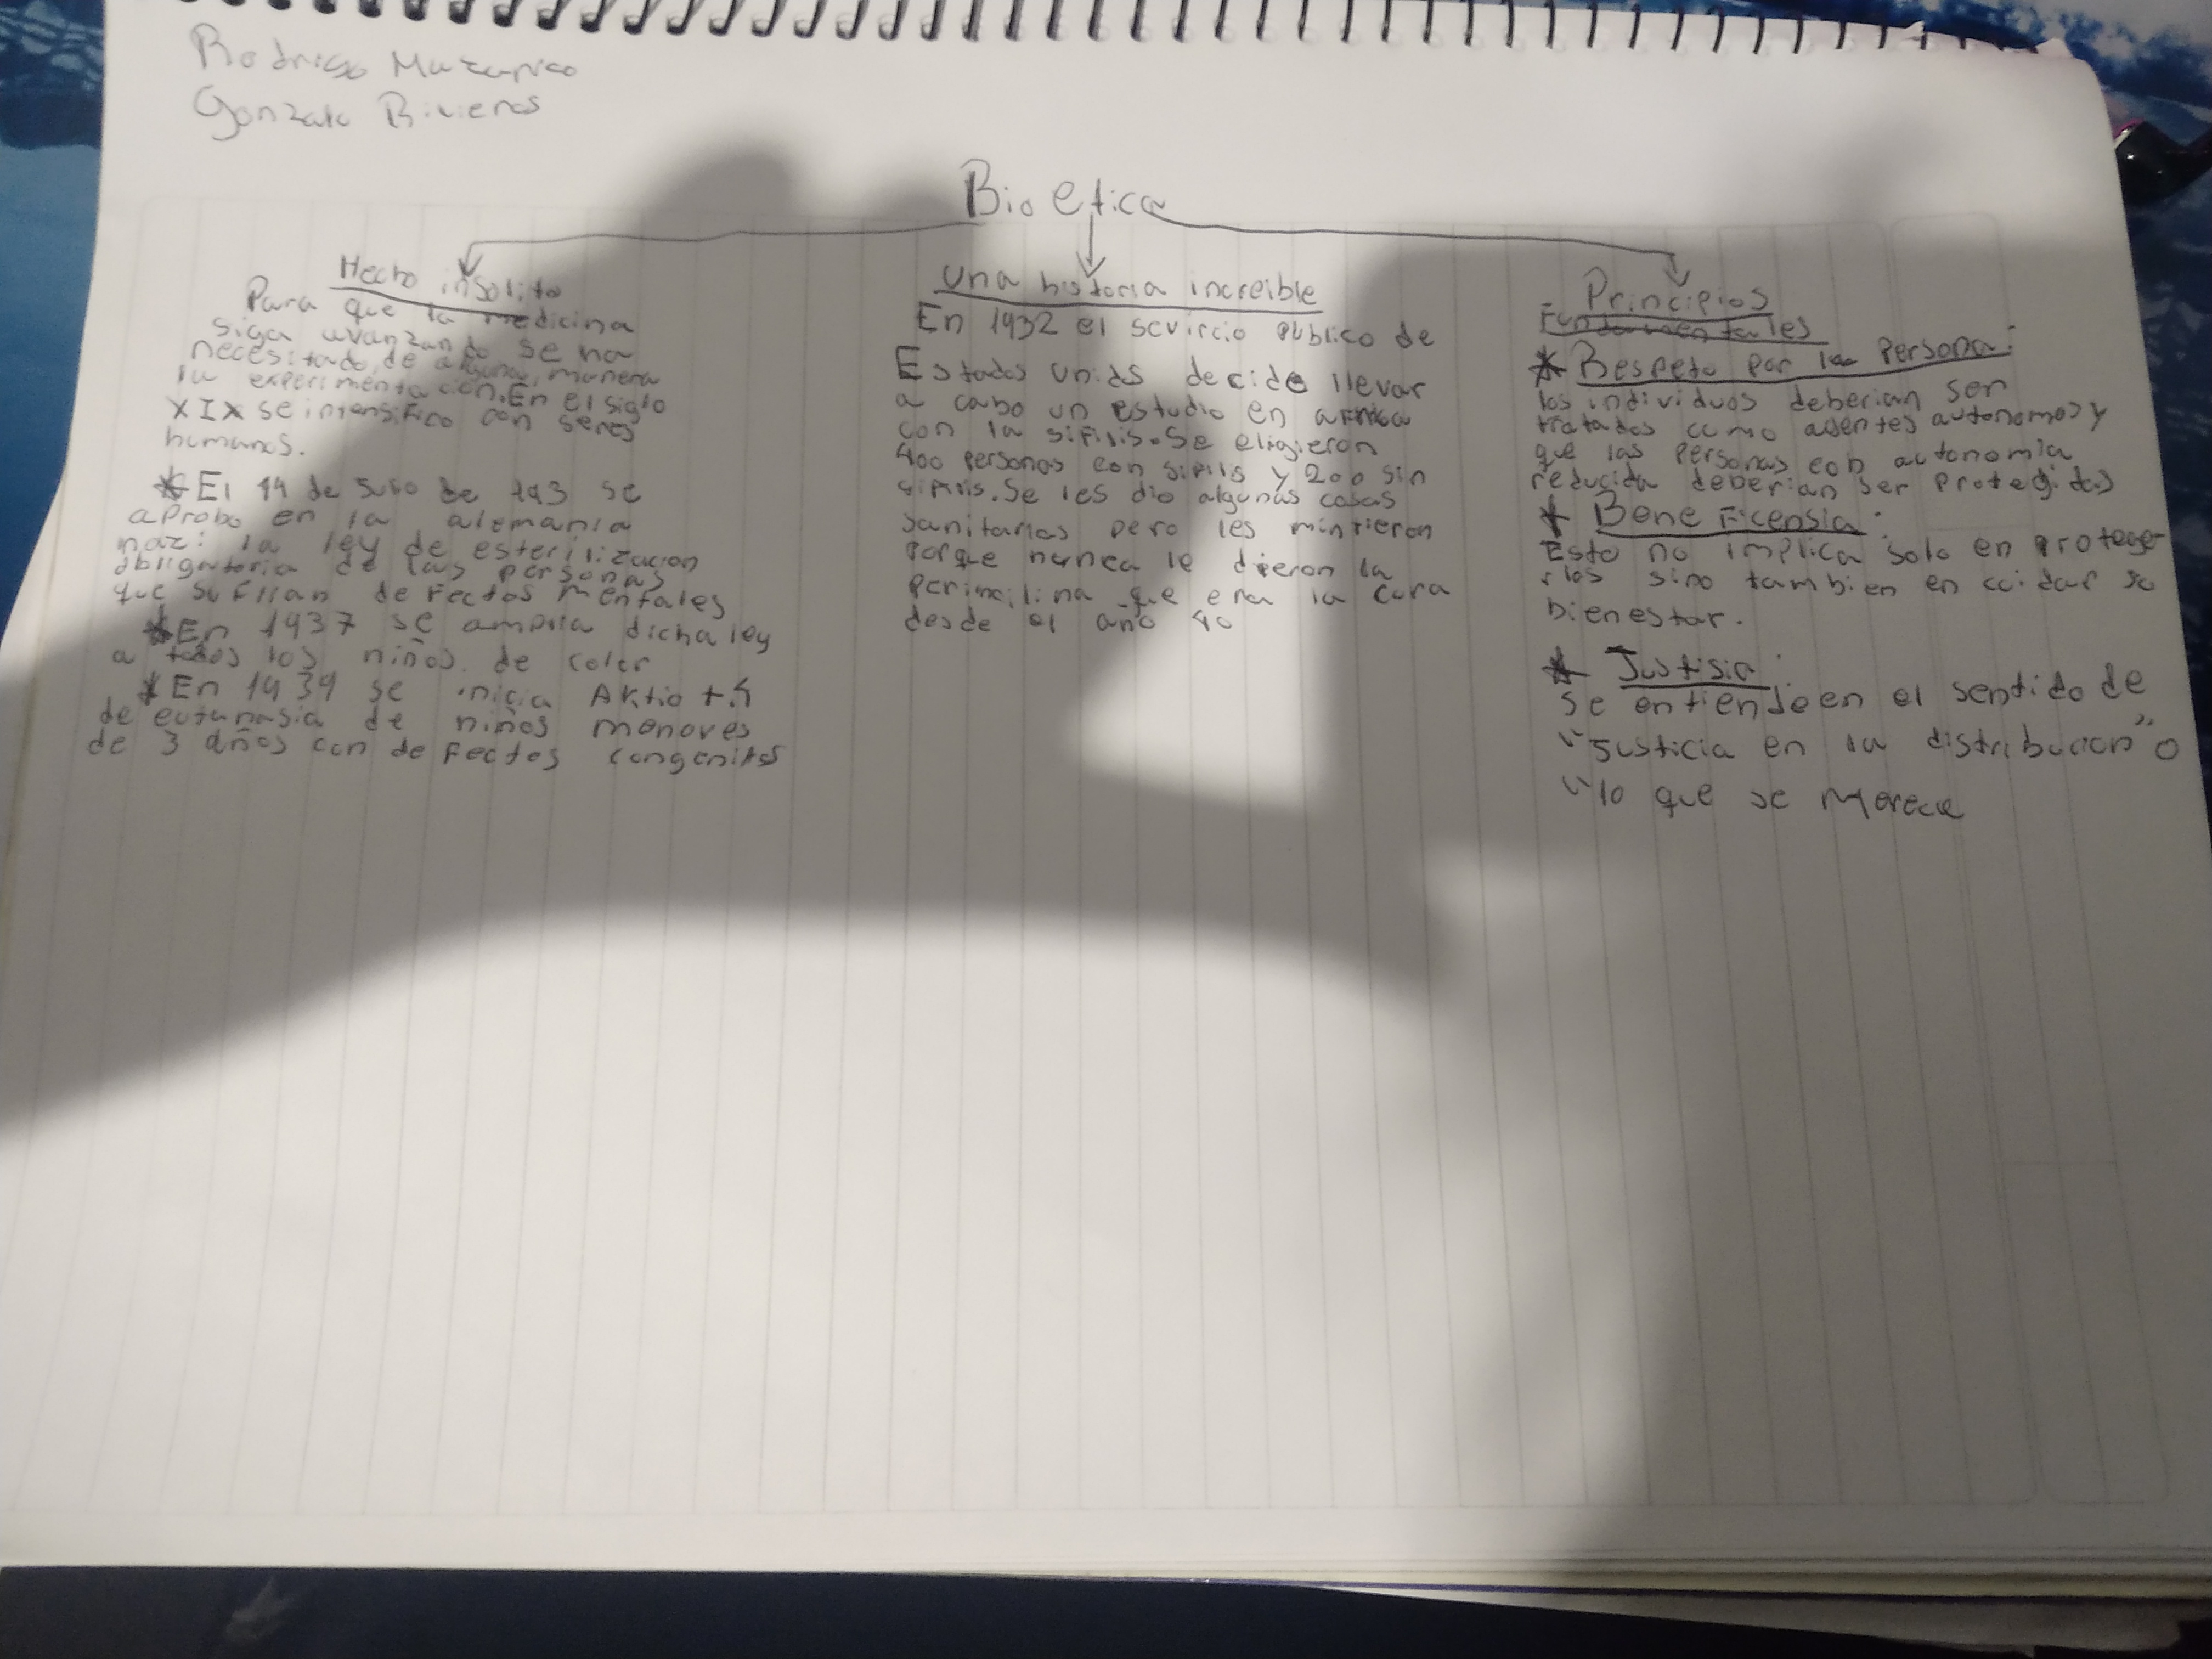 Rodrigo
Gonzalo Riveros
Bio etica
Hecho insolito
Para que la medicina
siga avanzando se ha
necesitado, de alguna, manera
la experimentacion. En el siglo
XIX se intensifico con seres
humanos.
* El 14 de Julio de 193 se
aprobo en la alemania
nazi la ley de esterilizacion
obligatoria de las personas
que sufrian defectos mentales
* En 1937 se amplia dicha ley
a todos los niños de color
* En 1939 se inicia Aktio t4
de eutanasia de niños menores
de 3 años con defectos congenitos
Una historia increible
En 1932 el sevircio publico de
Estados Unidos decide llevar
a cabo un estudio en
con la sifilis. Se eligieron
400 personas con sifilis y 200 sin
sifilis. Se les dio algunas cosas
sanitarias pero les mintieron
porque nunca le dieron la
que era la cura
desde el año 40
Principios
Fundamentales
* Respeto por la Persona:
los individuos deberian ser
tratados como agentes autonomos y
que las personas con autonomia
reducida deberian ser protegidas
* Bene Ficensia:
Esto no implica solo en protege-
rlos sino tambien en cuidar su
bienestar.
* Justisia:
Se entiende en el sentido de
"Justicia en la distribucion" o
"lo que se merece